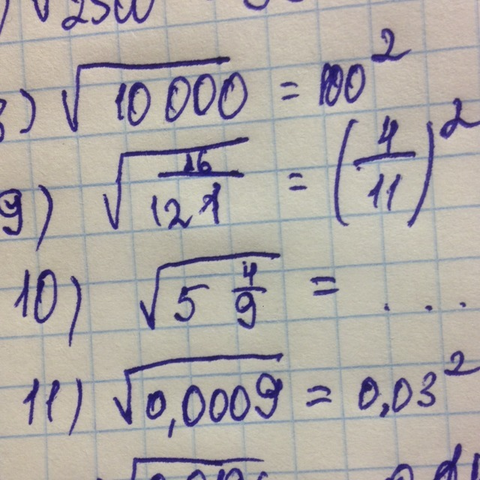 √2500
8) √10 000 = 100²
9) √16/121 = (4/11)²
10) √5 4/9 = ...
11) √0,0009 = 0,03²